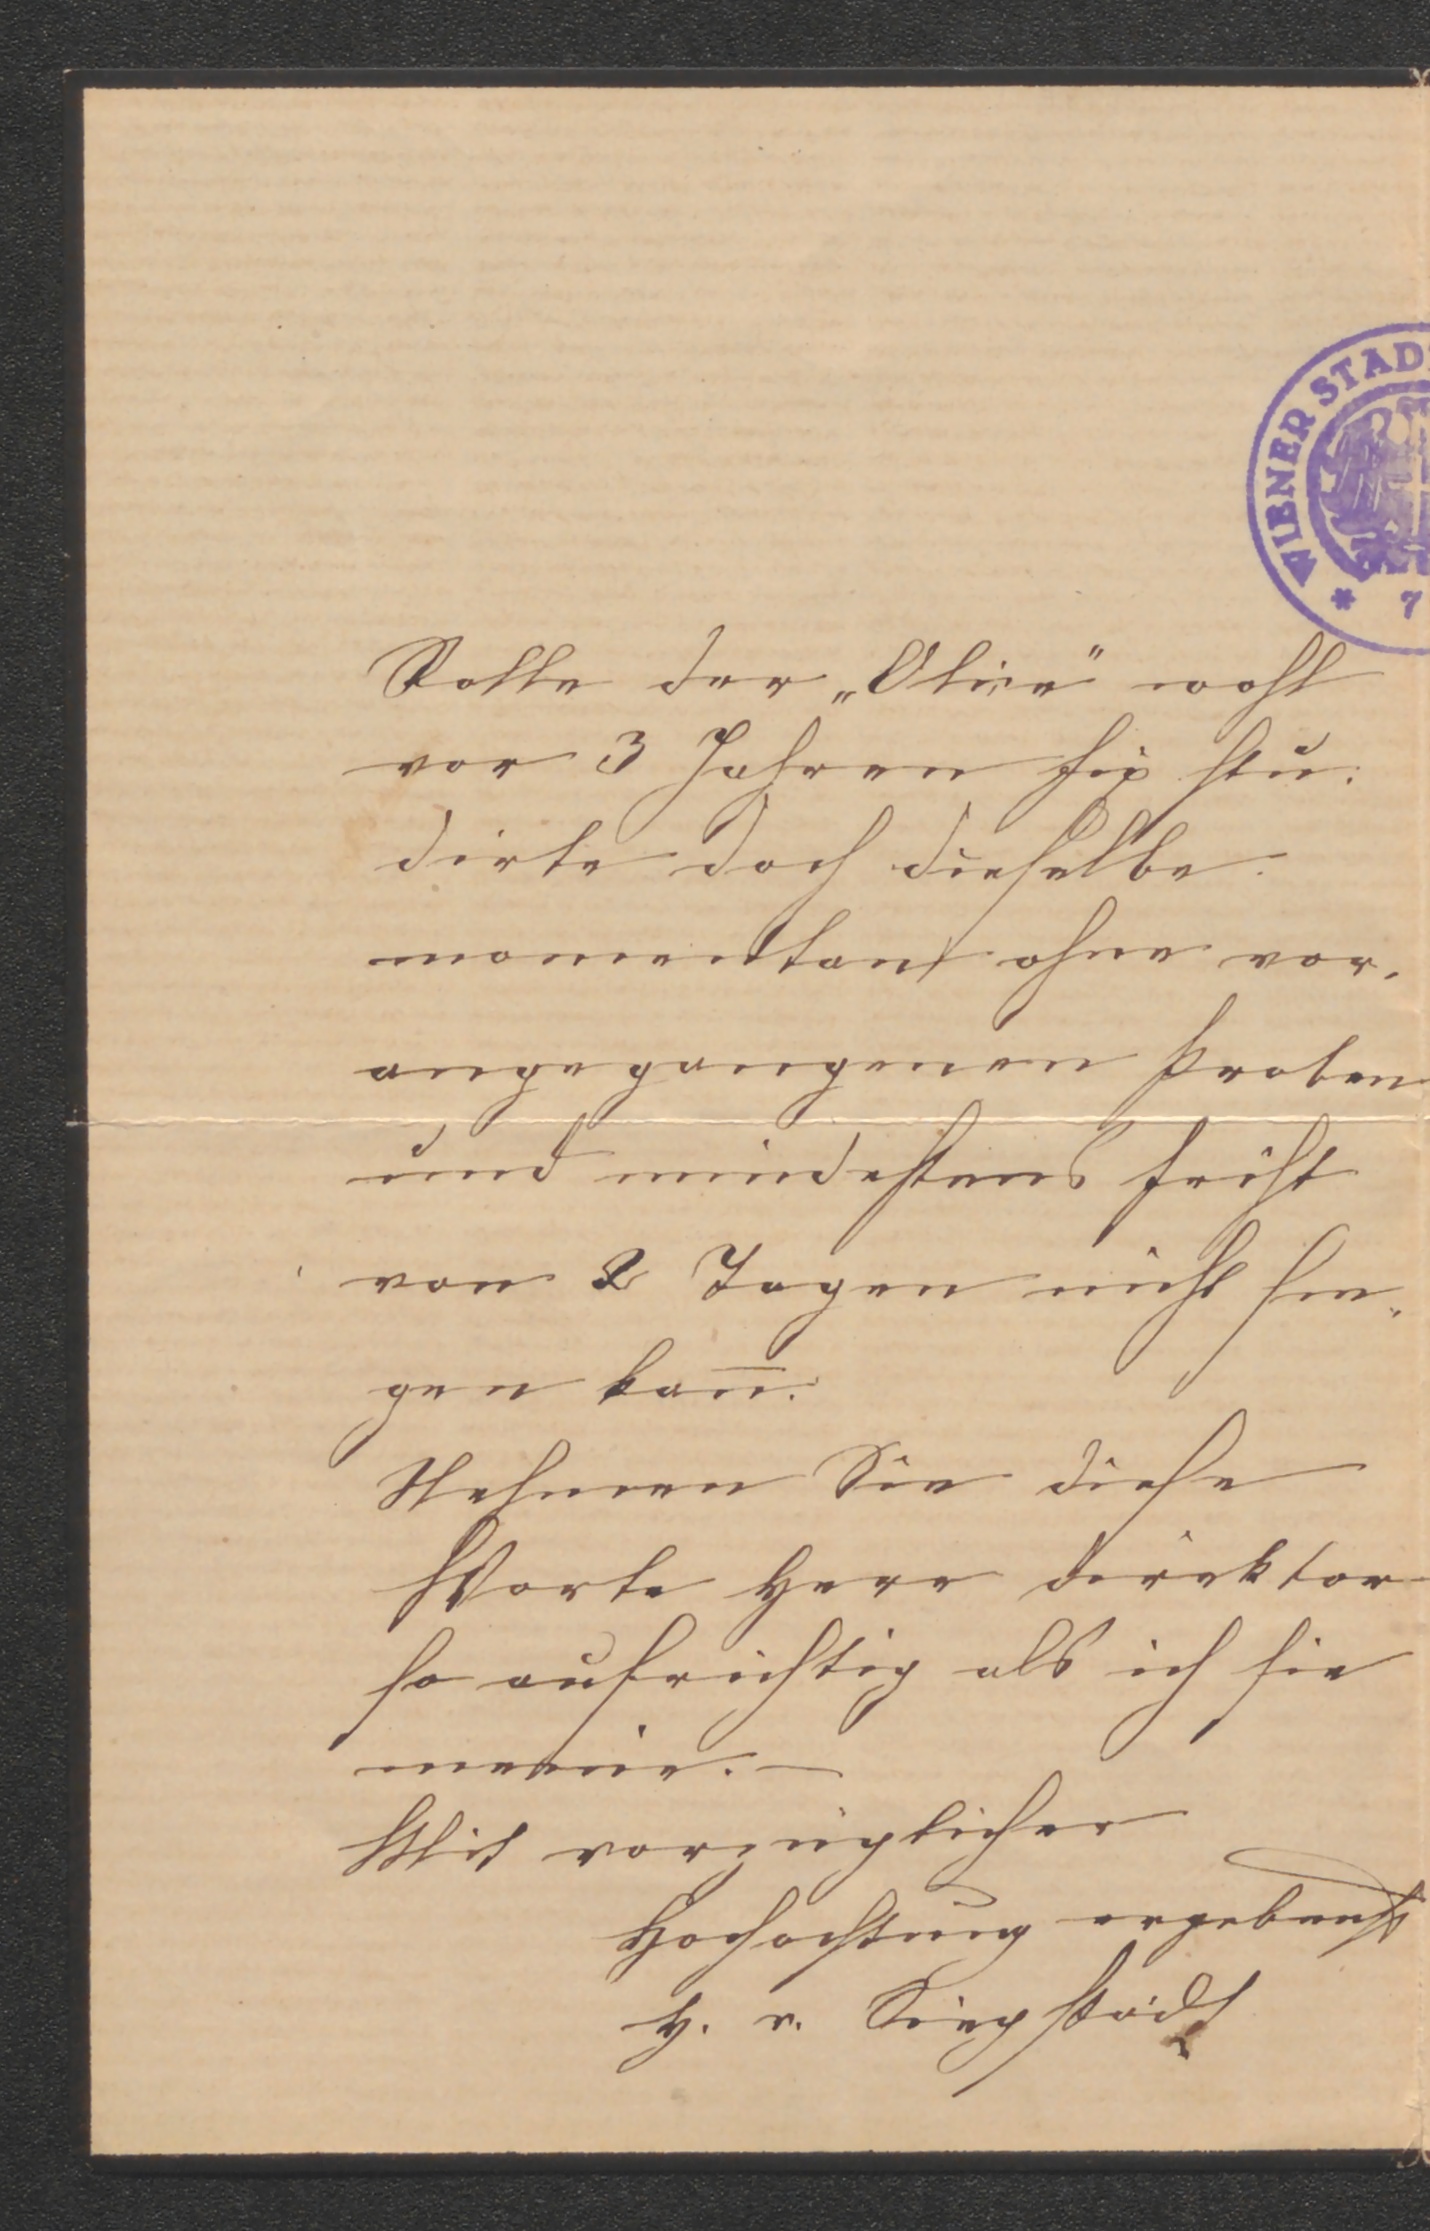 WIENER STAD
* 7
Rolle der „Alice" wohl
vor 3 Jahren fix stu-
dirte doch dieselbe
momentan ohne vor-
angegangenen Proben
und mindestens Frist
von 2 Tagen nicht sin-
gen kan̅.
Nehmen Sie diese
Worte Herr Direktor
so aufrichtig als ich sie
meine. —
Mit vorzüglicher
Hochachtung ergebenst
H. v.